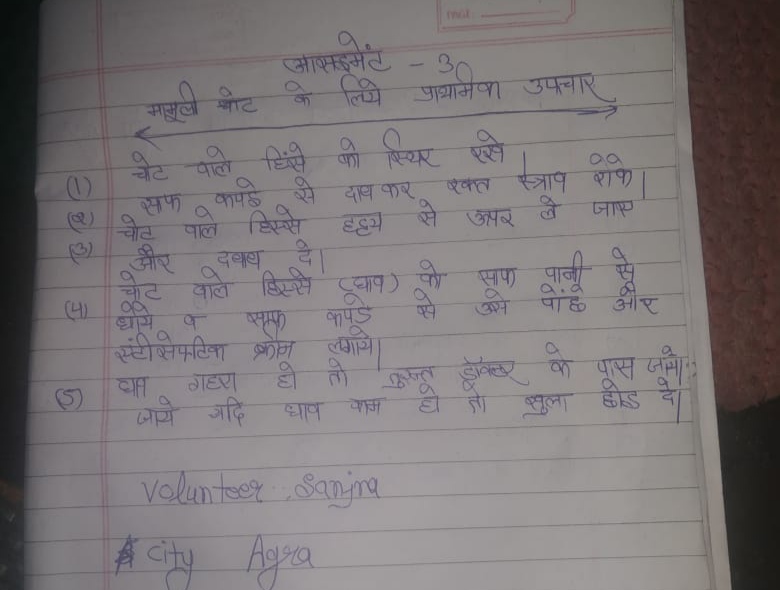 असाइमेंट - 3
मामुली चोट के लिये प्राथमिक उपचार
(1) चोट वाले हिंसे को स्थिर रखे |
(2) साफ कपडे से दाब कर रक्त स्त्राव रोके |
(3) चोट वाले हिस्से ह्दय से उपर ले जाए
और दवाब दे |
(4) चोट वाले हिस्से (घाव) को साफ पानी से
धोये व साफ कपडे से उसे पोंछे और
एंटीसेफटिक क्रीम लगाये |
(5) घाव गहरा हो तो तुरन्त डॉक्टर के पास
जाये यदि घाव कम हो तो खुला छोड दे |
Volunteer :. Sanjna
City Agra